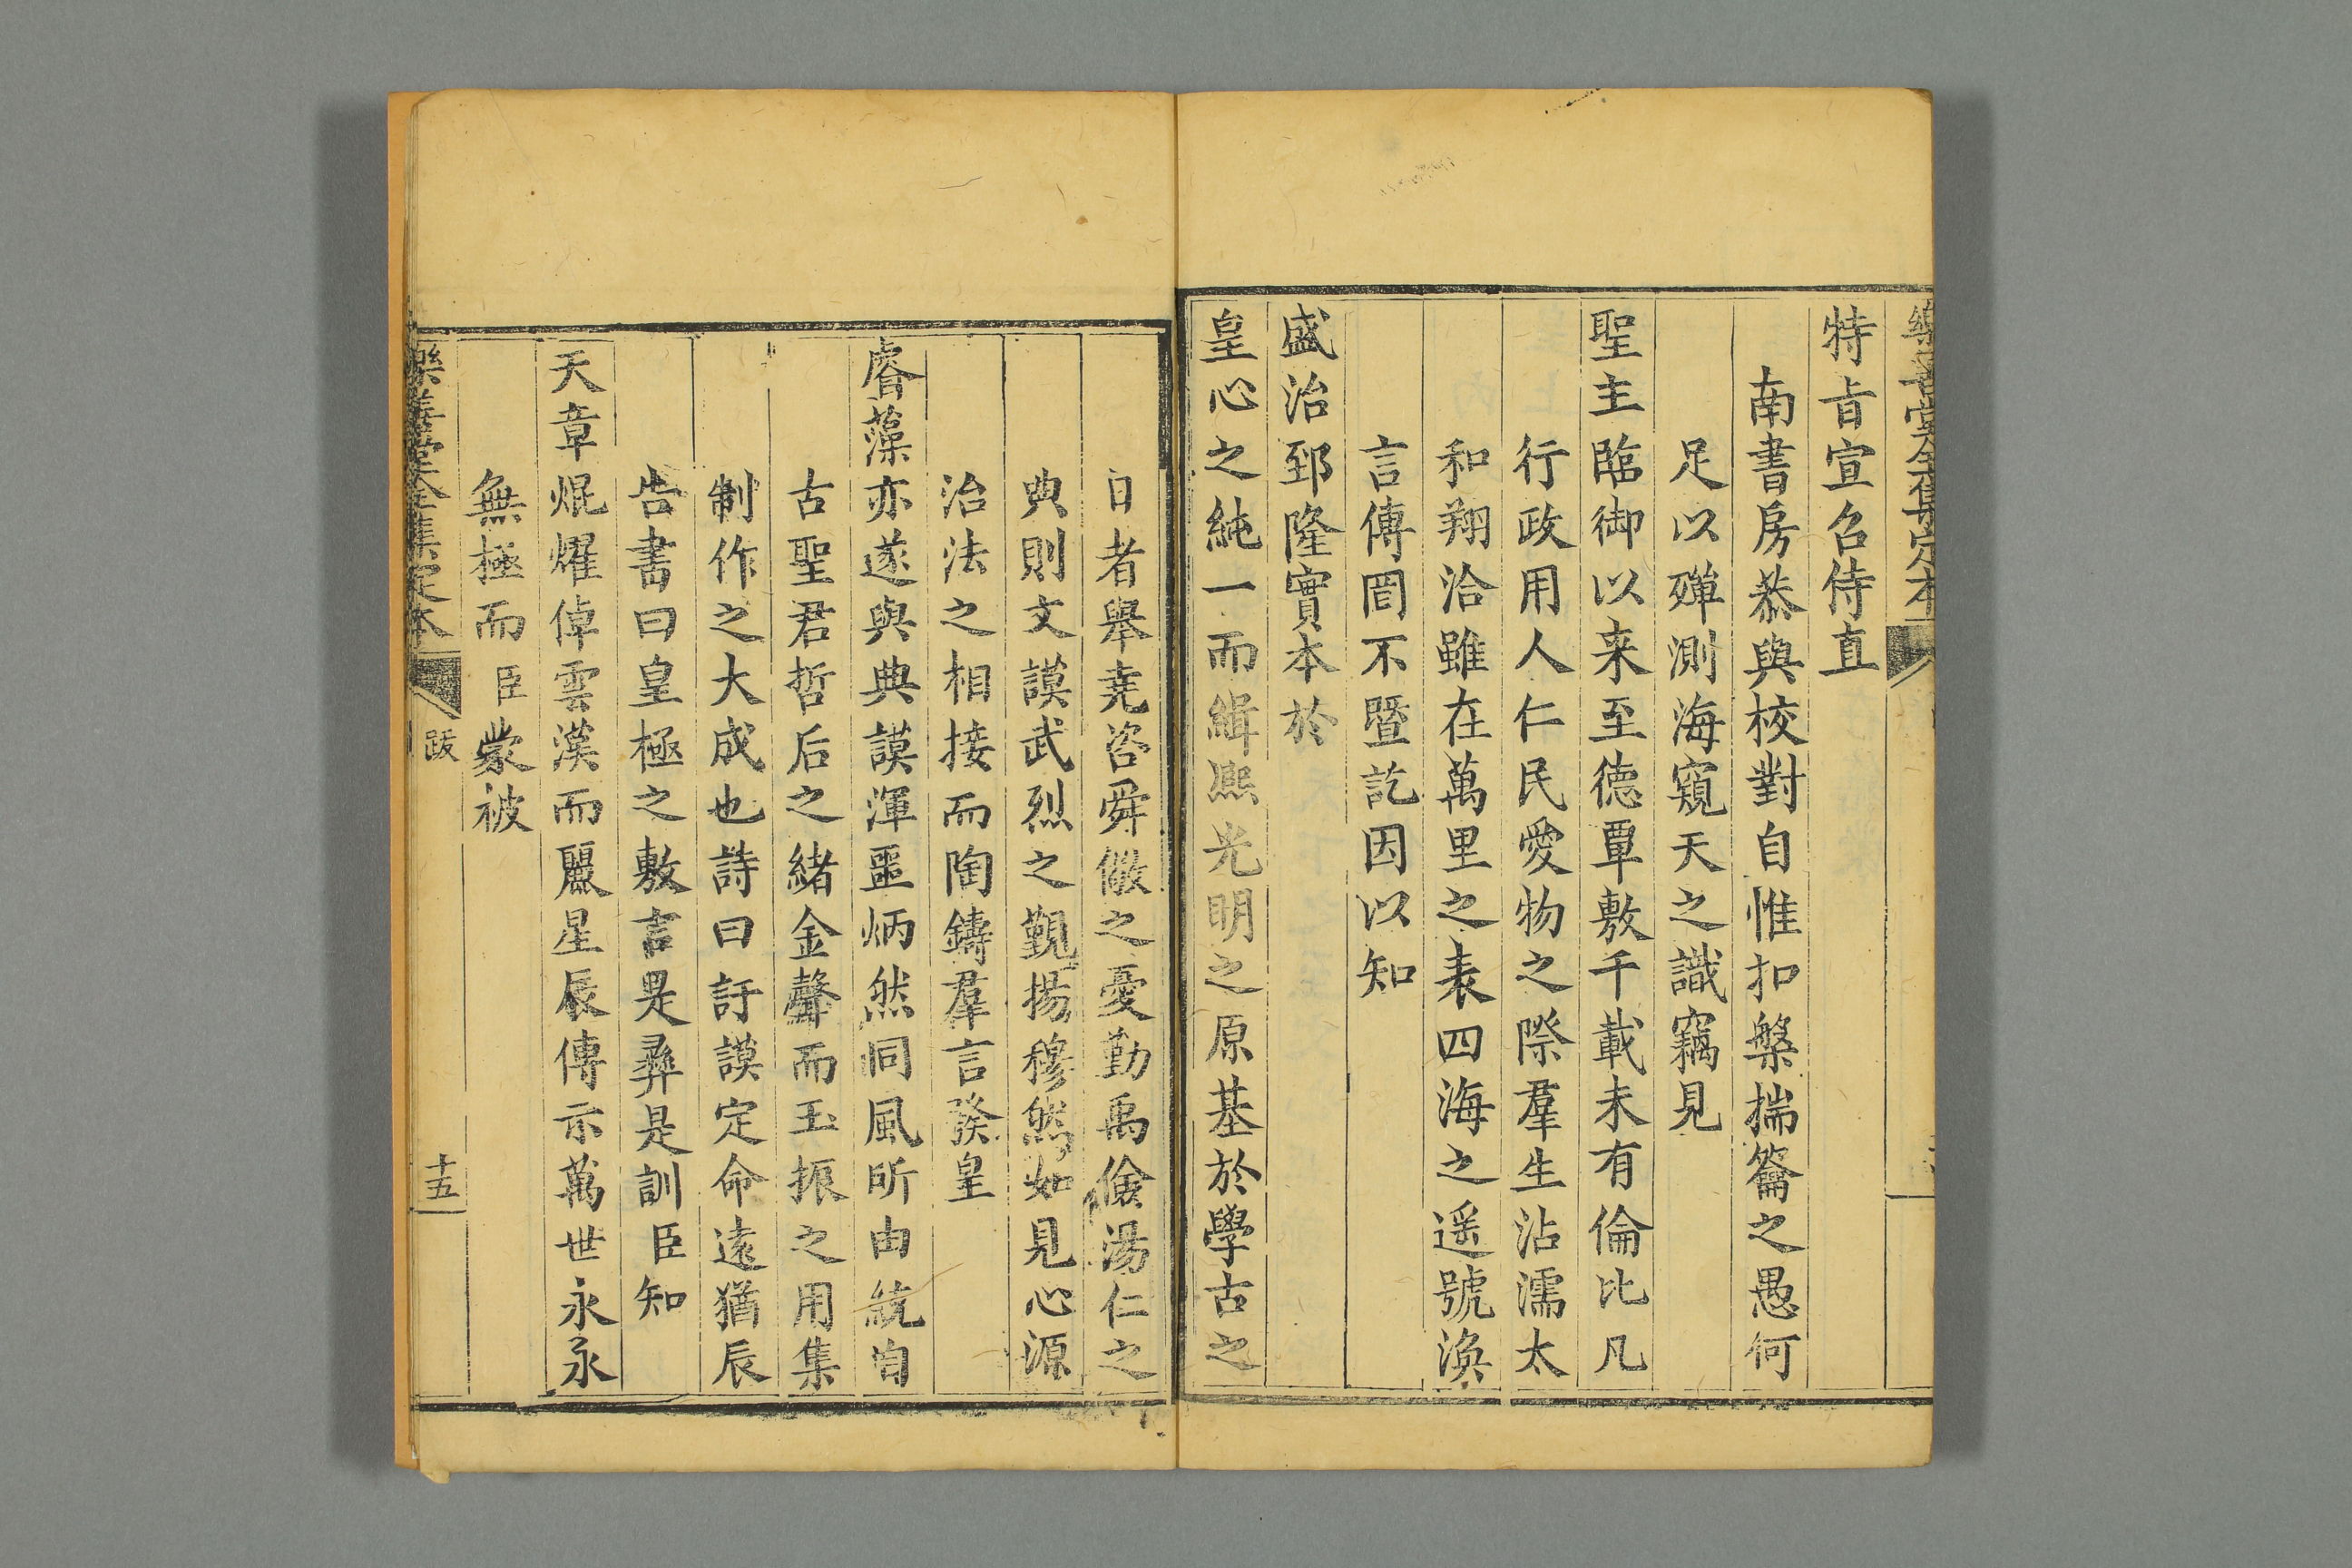 樂善堂全集定本
特旨宣召侍直
南書房恭與校對自惟扣槃揣籥之愚何
足以殫測海窺天之識竊見
聖主臨御以来至德覃敷千載未有倫比凡
行政用人仁民愛物之際羣生沾濡太
和翔洽雖在萬里之表四海之遥號渙
言傳罔不暨訖因以知
盛治郅隆實本於
皇心之純一而緝熙光明之原基於學古之
日者舉堯咨舜儆之憂勤禹儉湯仁之
典則文謨武烈之覲揚穆然如見心源
治法之相接而陶鑄羣言發皇
睿藻亦遂與典謨渾噩炳然同風昕由統自
古聖君哲后之緒金聲而玉振之用集
制作之大成也詩曰訏謨定命遠猶辰
告書曰皇極之敷言是彝是訓臣知
天章焜燿倬雲漢而麗星辰傳示萬世永永
無極而臣蒙被
樂善堂全集定本 跋 十五